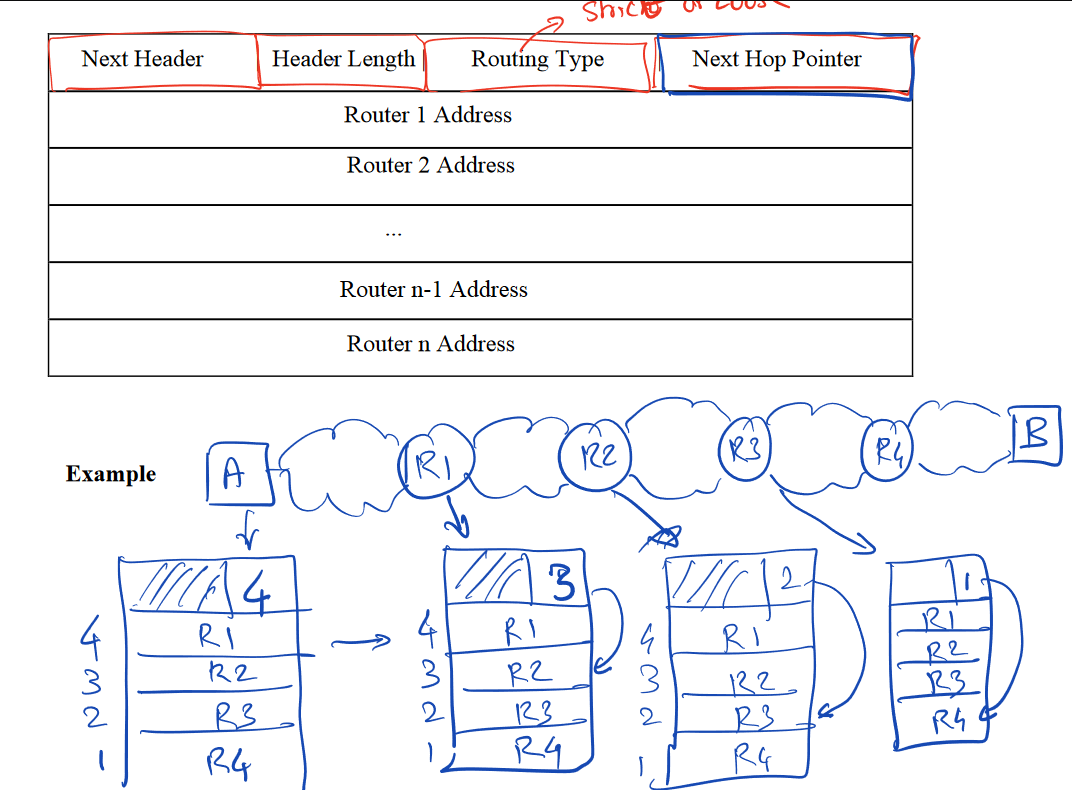 Strict or Loose
Next Header Header Length Routing Type Next Hop Pointer
Router 1 Address
Router 2 Address
...
Router n-1 Address
Router n Address
Example A R1 R2 R3 R4 B
4 3 2 1
4 R1 4 R1 4 R1 R1
3 R2 3 R2 3 R2 R2
2 R3 2 R3 2 R3 R3
1 R4 1 R4 1 R4 R4